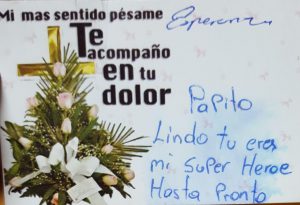 Mi mas sentido pésame
Esperanza
Te
acompaño
en tu
dolor
Papito
Lindo tu eres
mi Super Heroe
Hasta Pronto